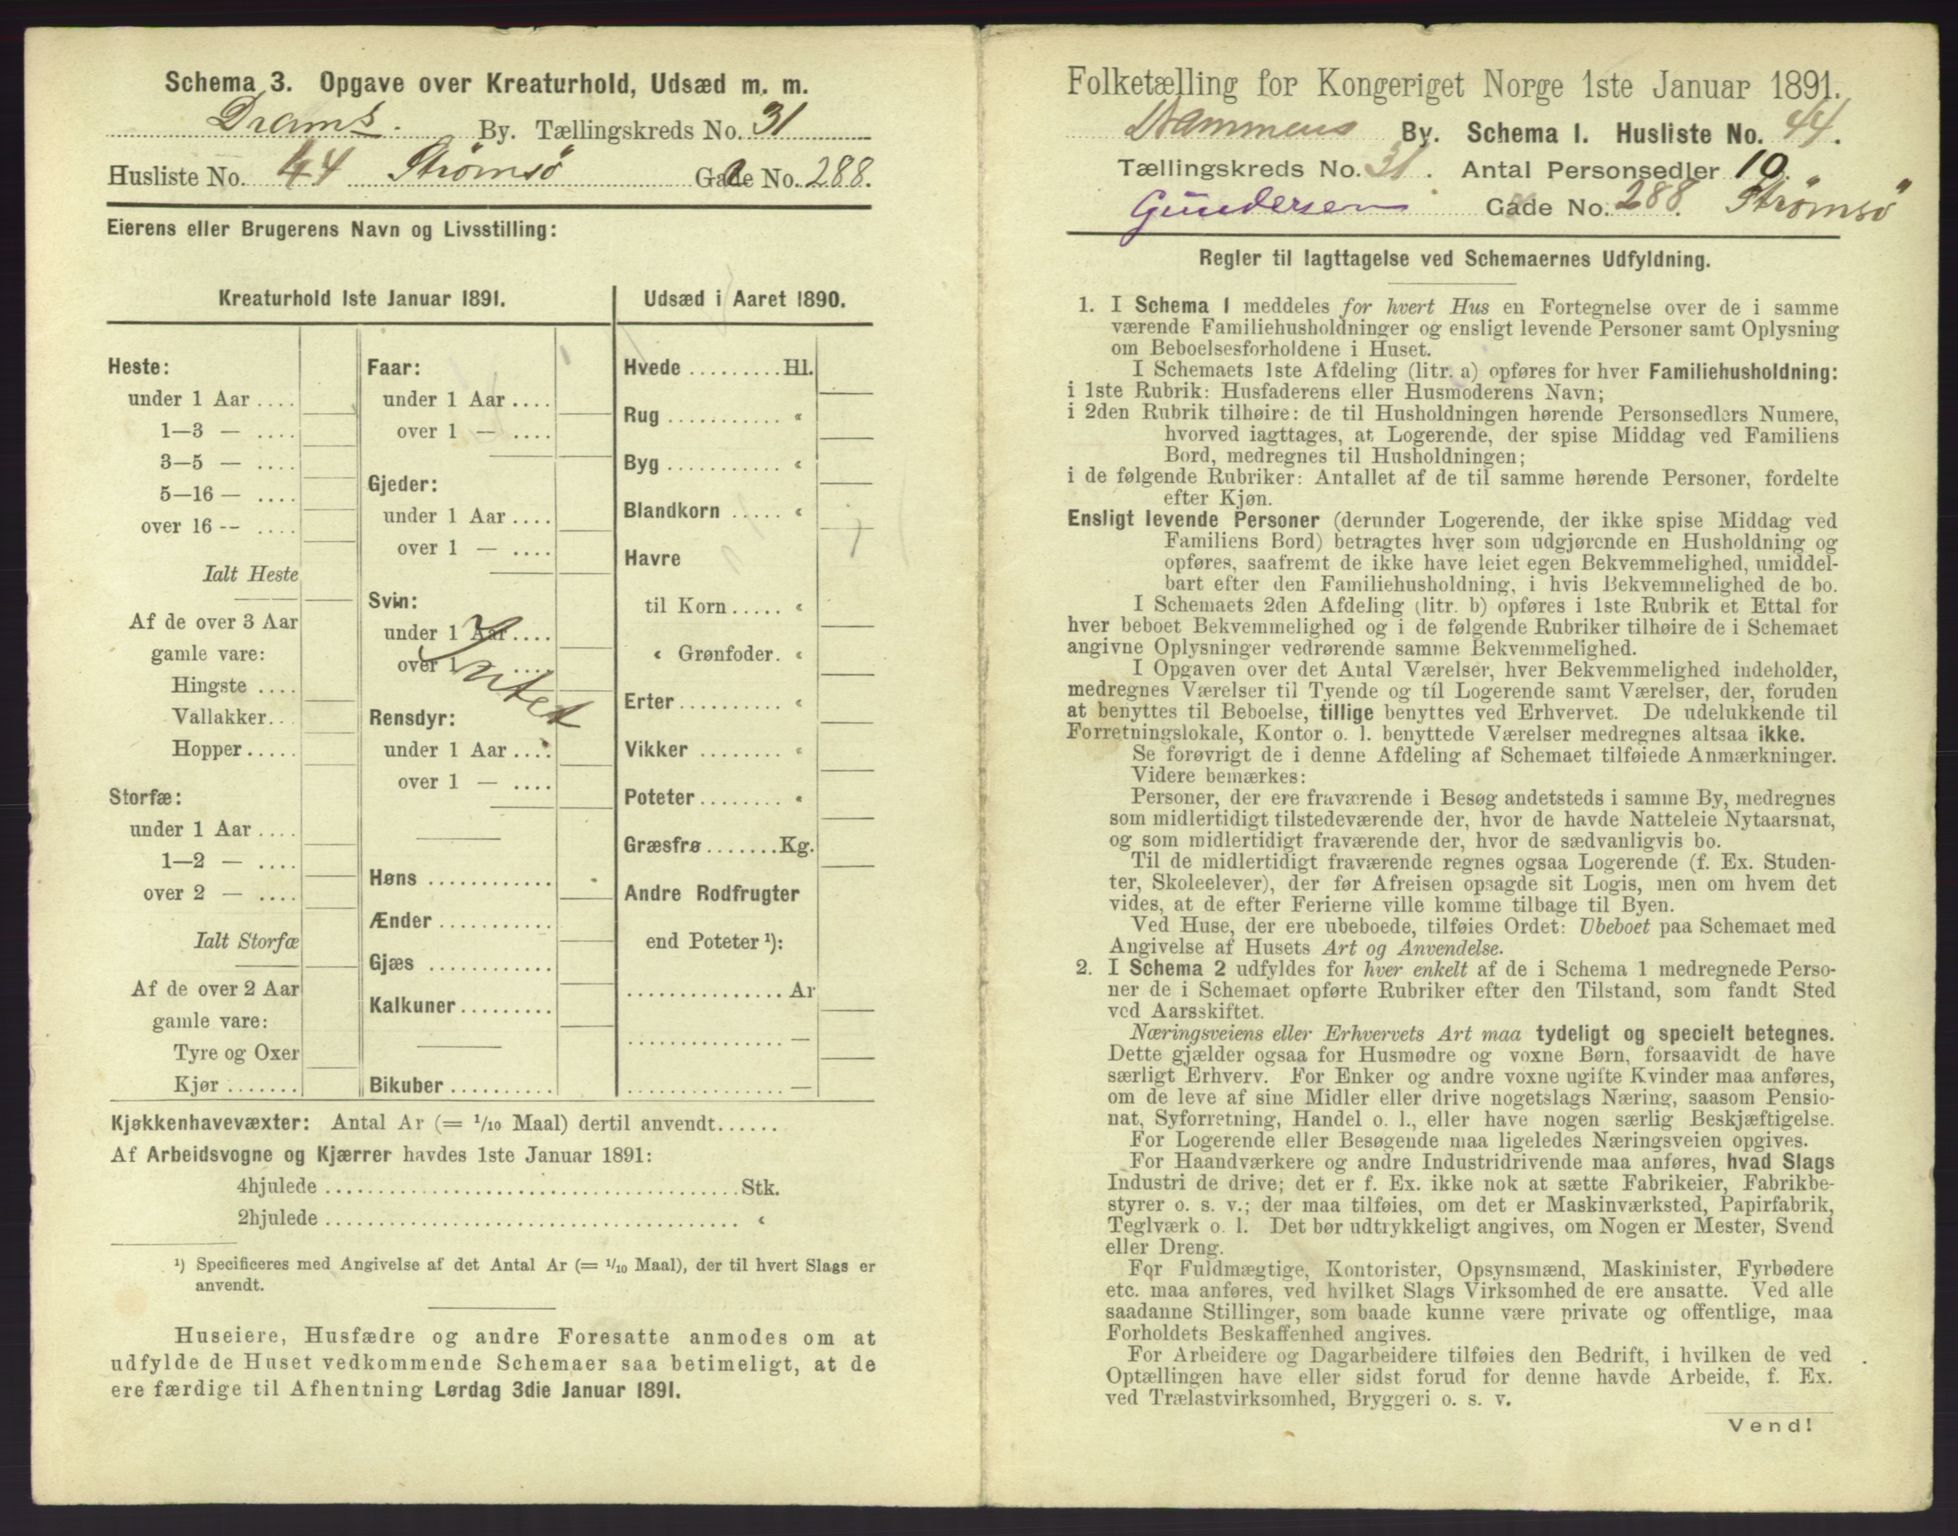 Schema 3. Opgave over Kreaturhold, Udsæd m. m.
Drams. By. Tællingskreds No. 31
Husliste No. 44 Strømsø Gade No. 288.
Eierens eller Brugerens Navn og Livsstilling:
Kreaturhold 1ste Januar 1891.
Heste:
under 1 Aar ....
1—3 — ....
3—5 — ....
5—16 — ....
over 16 -- ....
Ialt Heste
Af de over 3 Aar
gamle vare:
Hingste ....
Vallakker...
Hopper.....
Storfæ:
under 1 Aar ....
1—2 — ....
over 2 — ....
Ialt Storfæ
Af de over 2 Aar
gamle vare:
Tyre og Oxer
Kjør .......
Faar:
under 1 Aar ....
over 1 — ....
Gjeder:
under 1 Aar ....
over 1 — ....
Svin:
under 1 Aar....
over 1 ....
Intet
Rensdyr:
under 1 Aar ....
over 1 — ....
Høns ............
Ænder ...........
Gjæs ............
Kalkuner.........
Bikuber ..........
Udsæd i Aaret 1890.
Hvede .........Hl.
Rug ........... «
Byg ........... «
Blandkorn ..... «
Havre
til Korn ..... «
« Grønfoder. «
Erter.......... «
Vikker ........ «
Poteter........ «
Græsfrø .......Kg.
Andre Rodfrugter
end Poteter ¹):
............... Ar
............... —
............... —
Kjøkkenhavevæxter: Antal Ar (= 1/10 Maal) dertil anvendt......
Af Arbeidsvogne og Kjærrer havdes 1ste Januar 1891:
4hjulede ........................................Stk.
2hjulede ........................................ «
¹) Specificeres med Angivelse af det Antal Ar (= 1/10 Maal), der til hvert Slags er
anvendt.
Huseiere, Husfædre og andre Foresatte anmodes om at
udfylde de Huset vedkommende Schemaer saa betimeligt, at de
ere færdige til Afhentning Lørdag 3die Januar 1891.
Folketælling for Kongeriget Norge 1ste Januar 1891.
Drammens By. Schema I. Husliste No. 44.
Tællingskreds No. 31. Antal Personsedler 10.
Gundersen Gade No. 288. Strømsø
Regler til Iagttagelse ved Schemaernes Udfyldning.
1. I Schema I meddeles for hvert Hus en Fortegnelse over de i samme
værende Familiehusholdninger og ensligt levende Personer samt Oplysning
om Beboelsesforholdene i Huset.
I Schemaets 1ste Afdeling (litr. a) opføres for hver Familiehusholdning:
i 1ste Rubrik: Husfaderens eller Husmoderens Navn;
i 2den Rubrik tilhøire: de til Husholdningen hørende Personsedlers Numere,
hvorved iagttages, at Logerende, der spise Middag ved Familiens
Bord, medregnes til Husholdningen;
i de følgende Rubriker: Antallet af de til samme hørende Personer, fordelte
efter Kjøn.
Ensligt levende Personer (derunder Logerende, der ikke spise Middag ved
Familiens Bord) betragtes hver som udgjørende en Husholdning og
opføres, saafremt de ikke have leiet egen Bekvemmelighed, umiddel-
bart efter den Familiehusholdning, i hvis Bekvemmelighed de bo.
I Schemaets 2den Afdeling (litr. b) opføres i 1ste Rubrik et Ettal for
hver beboet Bekvemmelighed og i de følgende Rubriker tilhøire de i Schemaet
angivne Oplysninger vedrørende samme Bekvemmelighed.
I Opgaven over det Antal Værelser, hver Bekvemmelighed indeholder,
medregnes Værelser til Tyende og til Logerende samt Værelser, der, foruden
at benyttes til Beboelse, tillige benyttes ved Erhvervet. De udelukkende til
Forretningslokale, Kontor o. l. benyttede Værelser medregnes altsaa ikke.
Se forøvrigt de i denne Afdeling af Schemaet tilføiede Anmærkninger.
Videre bemærkes:
Personer, der ere fraværende i Besøg andetsteds i samme By, medregnes
som midlertidigt tilstedeværende der, hvor de havde Natteleie Nytaarsnat,
og som midlertidigt fraværende der, hvor de sædvanligvis bo.
Til de midlertidigt fraværende regnes ogsaa Logerende (f. Ex. Studen-
ter, Skoleelever), der før Afreisen opsagde sit Logis, men om hvem det
vides, at de efter Ferierne ville komme tilbage til Byen.
Ved Huse, der ere ubeboede, tilføies Ordet: Ubeboet paa Schemaet med
Angivelse af Husets Art og Anvendelse.
2. I Schema 2 udfyldes for hver enkelt af de i Schema 1 medregnede Perso-
ner de i Schemaet opførte Rubriker efter den Tilstand, som fandt Sted
ved Aarsskiftet.
Næringsveiens eller Erhvervets Art maa tydeligt og specielt betegnes.
Dette gjælder ogsaa for Husmødre og voxne Børn, forsaavidt de have
særligt Erhverv. For Enker og andre voxne ugifte Kvinder maa anføres,
om de leve af sine Midler eller drive nogetslags Næring, saasom Pensio-
nat, Syforretning, Handel o. l., eller have nogen særlig Beskjæftigelse.
For Logerende eller Besøgende maa ligeledes Næringsveien opgives.
For Haandværkere og andre Industridrivende maa anføres, hvad Slags
Industri de drive; det er f. Ex. ikke nok at sætte Fabrikeier, Fabrikbe-
styrer o. s. v.; der maa tilføies, om det er Maskinværksted, Papirfabrik,
Teglværk o. l. Det bør udtrykkeligt angives, om Nogen er Mester, Svend
eller Dreng.
For Fuldmægtige, Kontorister, Opsynsmænd, Maskinister, Fyrbødere
etc. maa anføres, ved hvilket Slags Virksomhed de ere ansatte. Ved alle
saadanne Stillinger, som baade kunne være private og offentlige, maa
Forholdets Beskaffenhed angives.
For Arbeidere og Dagarbeidere tilføies den Bedrift, i hvilken de ved
Optællingen have eller sidst forud for denne havde Arbeide, f. Ex.
ved Trælastvirksomhed, Bryggeri o. s. v.
Vend!